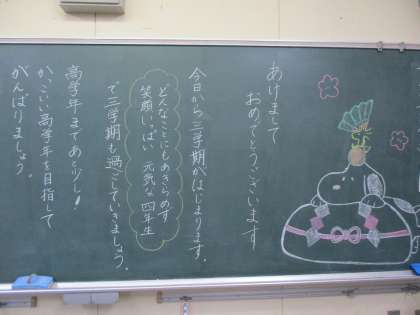 あけまして
おめでとうございます
今日から三学期がはじまります。
どんなことにもあきらめず
笑顔いっぱい 元気な四年生
で三学期も過ごしていきましょう。
高学年まであと少し!
かっこいい高学年を目指して
がんばりましょう。